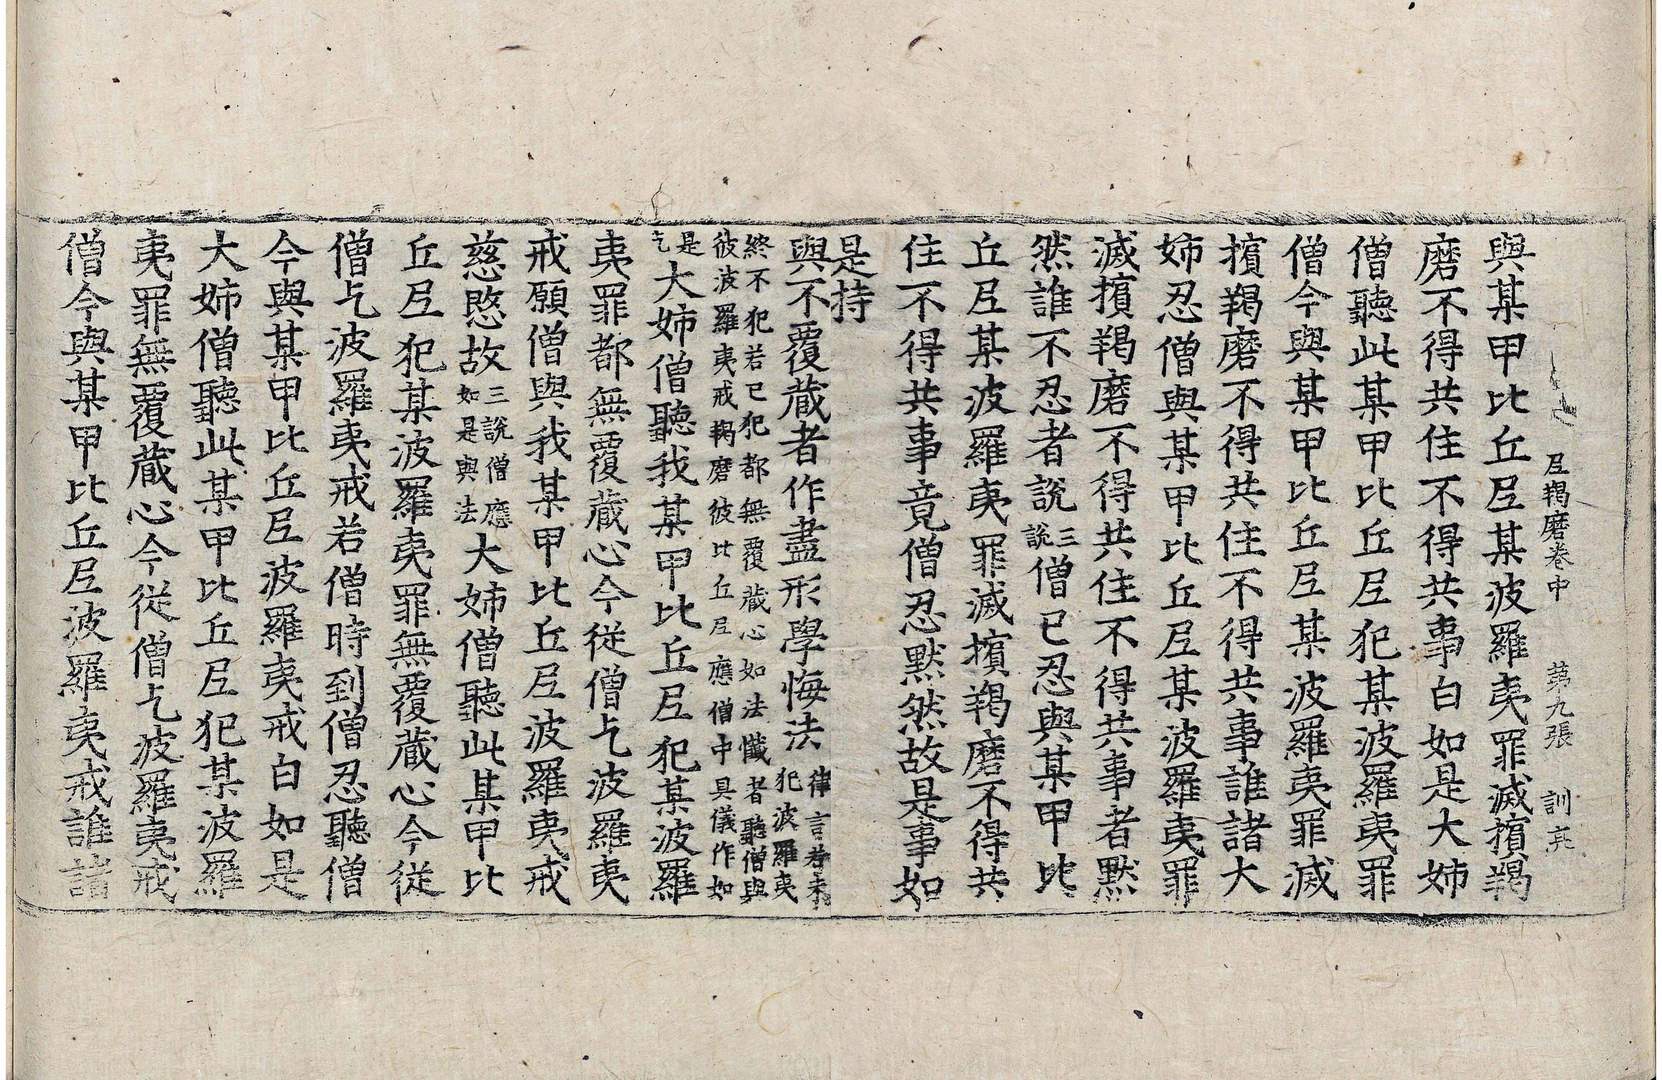 尼羯磨卷中 第九張 訓
與某甲比丘尼某波羅夷罪滅擯羯
磨不得共住不得共事白如是大姉
僧聽此某甲比丘尼犯某波羅夷罪
僧今與某甲比丘尼某波羅夷罪滅
擯羯磨不得共住不得共事誰諸大
姉忍僧與某甲比丘尼某波羅夷罪
滅擯羯磨不得共住不得共事者黙
然誰不忍者說三說僧已忍與某甲比
丘尼某波羅夷罪滅擯羯磨不得共
住不得共事竟僧忍黙然故是事如
是持
與不覆蔵者作盡形學悔法律言若未犯波羅夷
終不犯若已犯都無覆蔵心如法懺者聽僧與
彼波羅夷戒羯磨彼比丘尼應僧中具儀作如
是乞大姉僧聽我某甲比丘尼犯某波羅
夷罪都無覆蔵心今従僧乞波羅夷
戒願僧與我某甲比丘尼波羅夷戒
慈愍故三說僧應如是與法大姉僧聽此某甲比
丘尼犯某波羅夷罪無覆蔵心今従
僧乞波羅夷戒若僧時到僧忍聽僧
今與某甲比丘尼波羅夷戒白如是
大姉僧聽此某甲比丘尼犯某波羅
夷罪無覆蔵心今従僧乞波羅夷戒
僧今與某甲比丘尼波羅夷戒誰諸